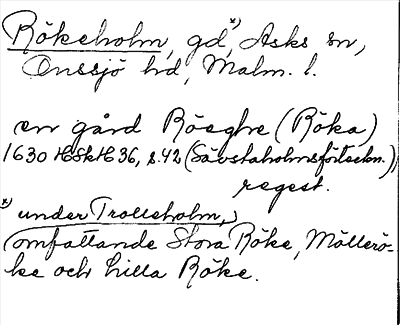 Rökeholm, gd*), Asks sn,
Onssjö hd, Malm. l.
en gård Röeghe (Röka)
1630 HSkH 36, s. 42 (Sävstaholmsförteckn.),
regest.
*) under Trolleholm,
omfattande Stora Röke, Mölleröke
ke och Lilla Röke.